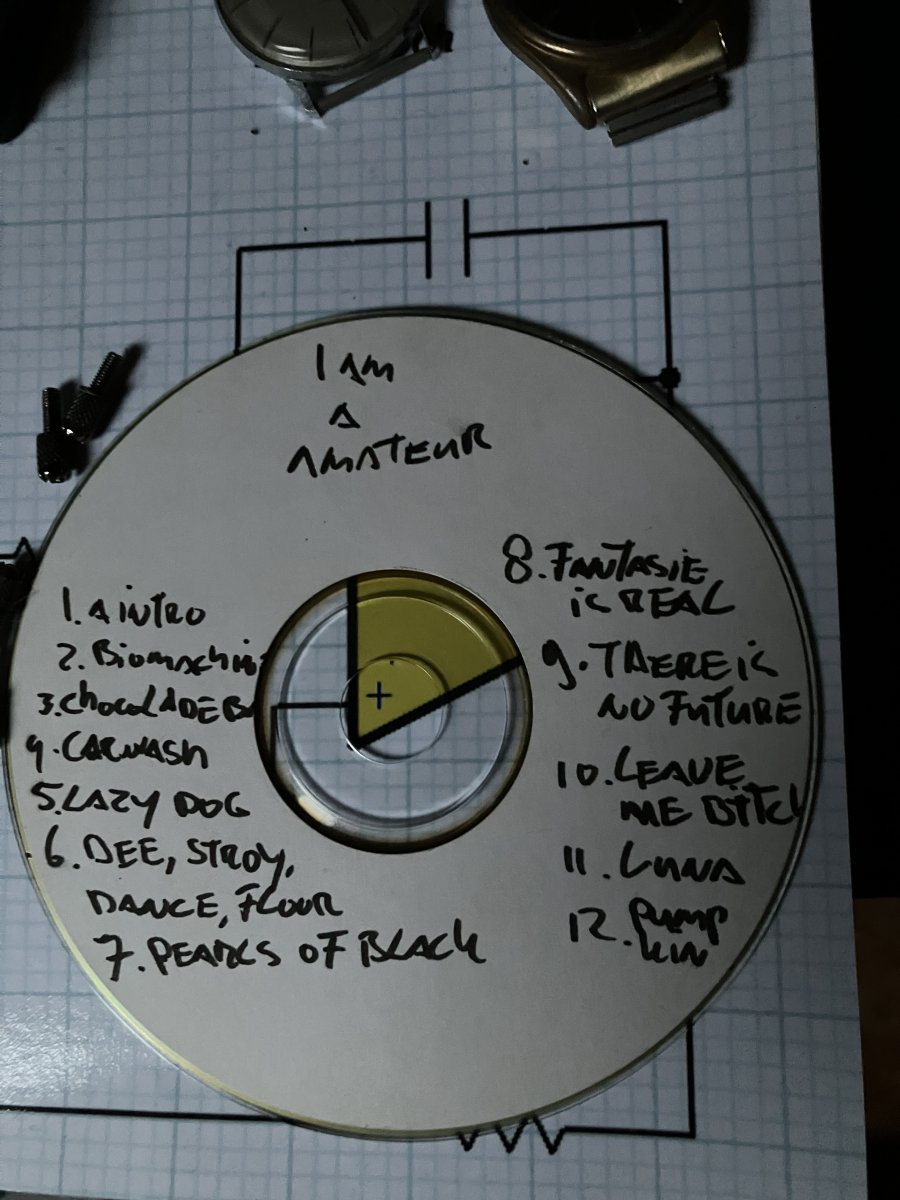 I AM
A
AMATEUR
1. A iNTRO
2. Biomaschin
3. ChocolADE
4. CARWASH
5. LAZY DOG
6. DEE, STROY,
DANCE, FLOUR
7. PEARLS OF BLACK
8. FANTASiE
iS REAL
9. THERE iS
NO FUTURE
10. LEAVE
ME BITCH
11. LUNA
12. PUMP
KIN
+